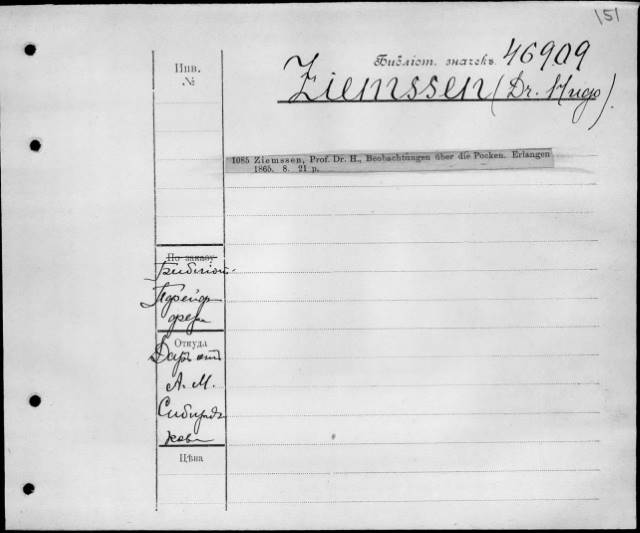 151
Библіот. значекъ. 46909
Ziemssen (Dr. Hugo).
Инв.
№
1085 Ziemssen, Prof. Dr. H., Beobachtungen über die Pocken. Erlangen
1865. 8. 21 p.
По заказу
Библіот.
Пфейф
фера
Откуда
Даръ отъ
А. М.
Сибиряк
кова
Цѣна